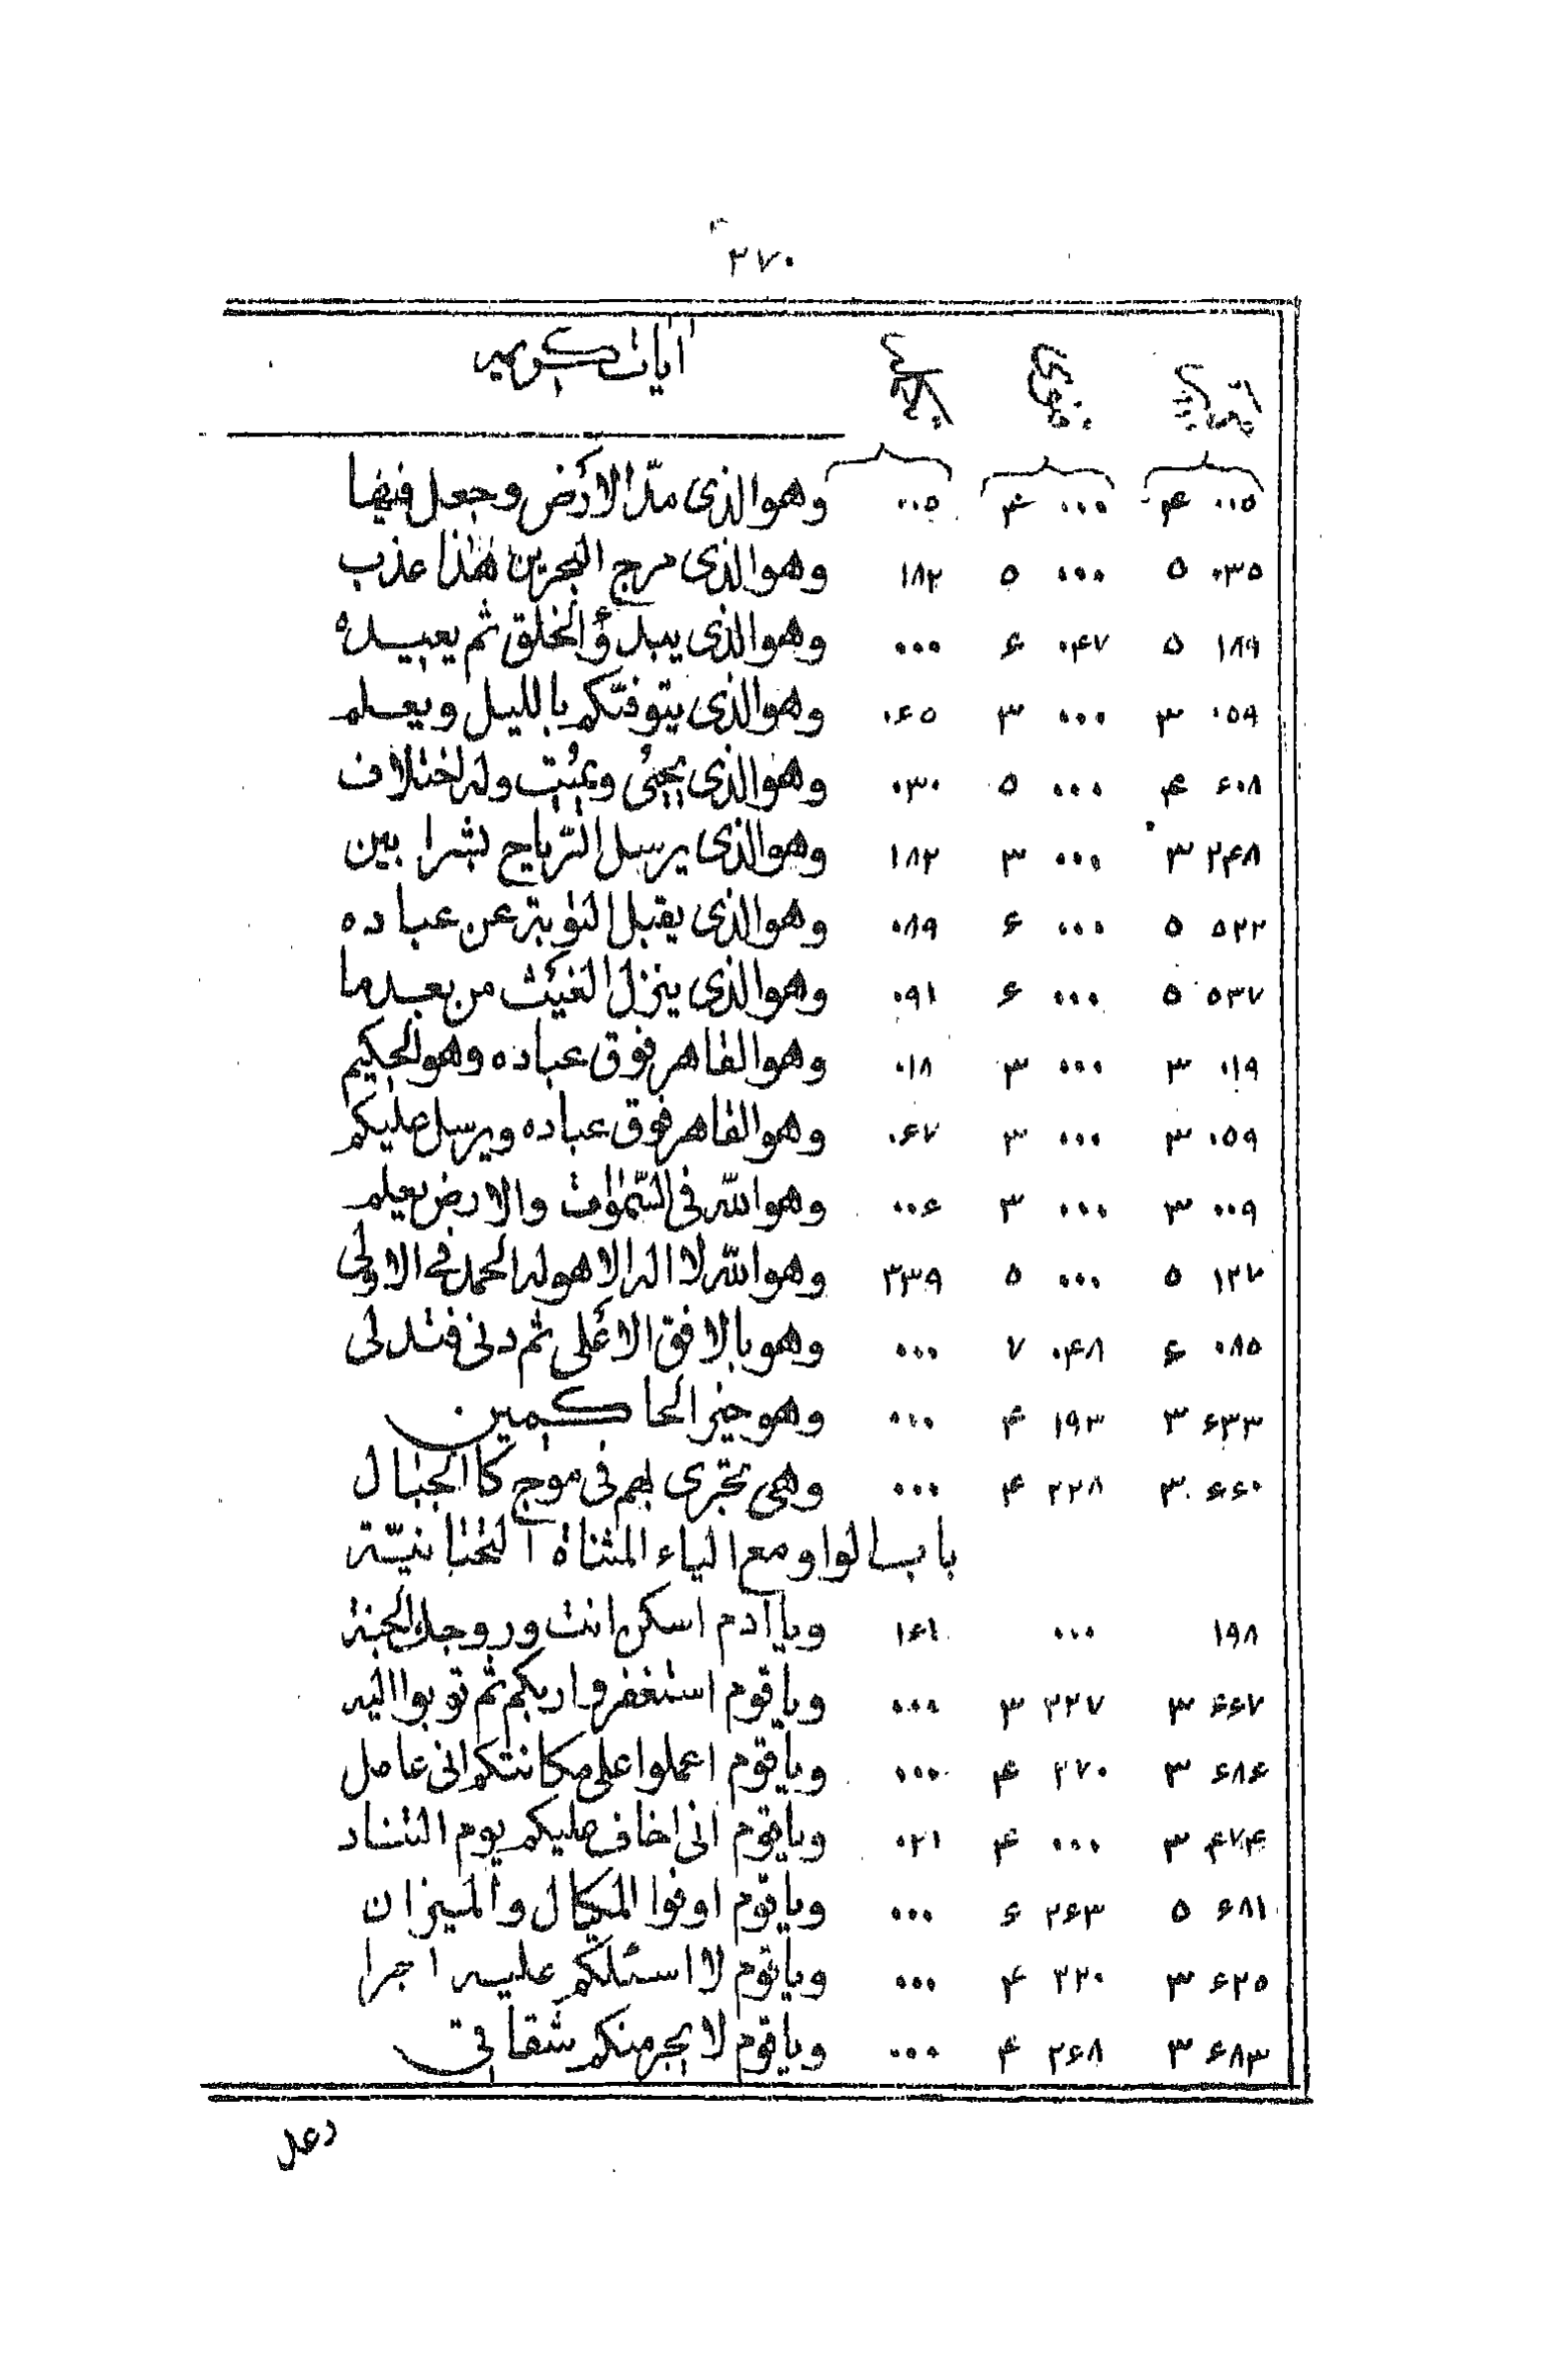 ۲۷۰
آيات كريمه
۰۰۵ ۴ ۰۰۰ ۴ ۰۰۵ وهوالذى مدّ الأرض وجعل فيها
۰۳۵ ۵ ۰۰۰ ۵ ۱۸۲ وهوالذى مرج البحرين هذا عذب
۱۸۹ ۵ ۰۴۷ ۶ ۰۰۰ وهوالذى يبدؤ الخلق ثم يعيده
۰۵۹ ۳ ۰۰۰ ۳ ۰۶۵ وهوالذى يتوفّكم بالليل ويعلم
۶۰۸ ۴ ۰۰۰ ۵ ۰۳۰ وهوالذى يحيى ويميت وله اختلاف
۲۴۸ ۳ ۰۰۰ ۳ ۱۸۲ وهوالذى يرسل الرّياح بشرا بين
۵۲۲ ۵ ۰۰۰ ۶ ۰۸۹ وهوالذى يقبل التوبة عن عباده
۵۳۷ ۵ ۰۰۰ ۶ ۰۹۱ وهوالذى ينزل الغيث من بعد ما
۰۱۹ ۳ ۰۰۰ ۳ ۰۱۸ وهوالقاهر فوق عباده وهوالحكيم
۰۵۹ ۳ ۰۰۰ ۳ ۰۶۷ وهوالقاهر فوق عباده ويرسل عليكم
۰۰۹ ۳ ۰۰۰ ۳ ۰۰۶ وهوالله فى السّموات والارض يعلم
۱۲۷ ۵ ۰۰۰ ۵ ۲۳۹ وهوالله لا اله الا هو له الحمد فى الاولى
۰۸۵ ۶ ۰۴۸ ۷ ۰۰۰ وهو بالافق الاعلى ثم دنى فتدلى
۶۳۳ ۳ ۱۹۳ ۴ ۰۰۰ وهو خير الحاكمين
۶۶۰ ۳ ۲۲۸ ۴ ۰۰۰ وهى تجرى بهم فى موج كالجبال
باب الواو مع الياء المثناة التحتانيّة
۱۹۸ ۰۰۰ ۱۶۱ ويا ادم اسكن انت وزوجك الجنة
۶۶۷ ۳ ۲۲۷ ۳ ۰۰۰ وياقوم استغفروا ربكم ثم توبوا اليه
۶۸۶ ۳ ۲۷۰ ۴ ۰۰۰ وياقوم اعملوا على مكانتكم انى عامل
۴۷۴ ۳ ۰۰۰ ۴ ۰۲۱ وياقوم انى اخاف عليكم يوم التناد
۶۸۱ ۵ ۲۶۳ ۶ ۰۰۰ وياقوم اوفوا المكيال والميزان
۶۲۵ ۳ ۲۲۰ ۴ ۰۰۰ وياقوم لا اسئلكم عليه اجرا
۶۸۳ ۳ ۲۶۸ ۴ ۰۰۰ وياقوم لا يجرمنكم شقاقى